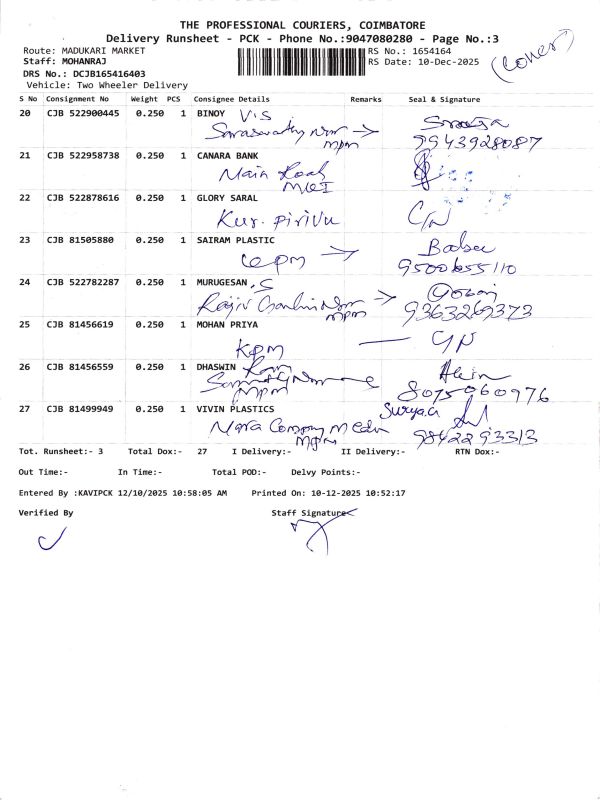 THE PROFESSIONAL COURIERS, COIMBATORE
Delivery Runsheet - PCK - Phone No.:9047080280 - Page No.:3
Route: MADUKARI MARKET RS No.: 1654164
Staff: MOHANRAJ RS Date: 10-Dec-2025
DRS No.: DCJB165416403
Vehicle: Two Wheeler Delivery
S No Consignment No Weight PCS Consignee Details Remarks Seal & Signature
20 CJB 522900445 0.250 1 BINOY V.S
mpm 9943928087
21 CJB 522958738 0.250 1 CANARA BANK
Main Road
22 CJB 522878616 0.250 1 GLORY SARAL
Kur. Pirivu C/N
23 CJB 81505880 0.250 1 SAIRAM PLASTIC
9500655110
24 CJB 522782287 0.250 1 MURUGESAN .S
mpm 9363269373
25 CJB 81456619 0.250 1 MOHAN PRIYA
Kpm
26 CJB 81456559 0.250 1 DHASWIN
mpm 8075060976
27 CJB 81499949 0.250 1 VIVIN PLASTICS Surya.G
Company 9842293313
Tot. Runsheet:- 3 Total Dox:- 27 I Delivery:- II Delivery:- RTN Dox:-
Out Time:- In Time:- Total POD:- Delvy Points:-
Entered By :KAVIPCK 12/10/2025 10:58:05 AM Printed On: 10-12-2025 10:52:17
Verified By Staff Signature